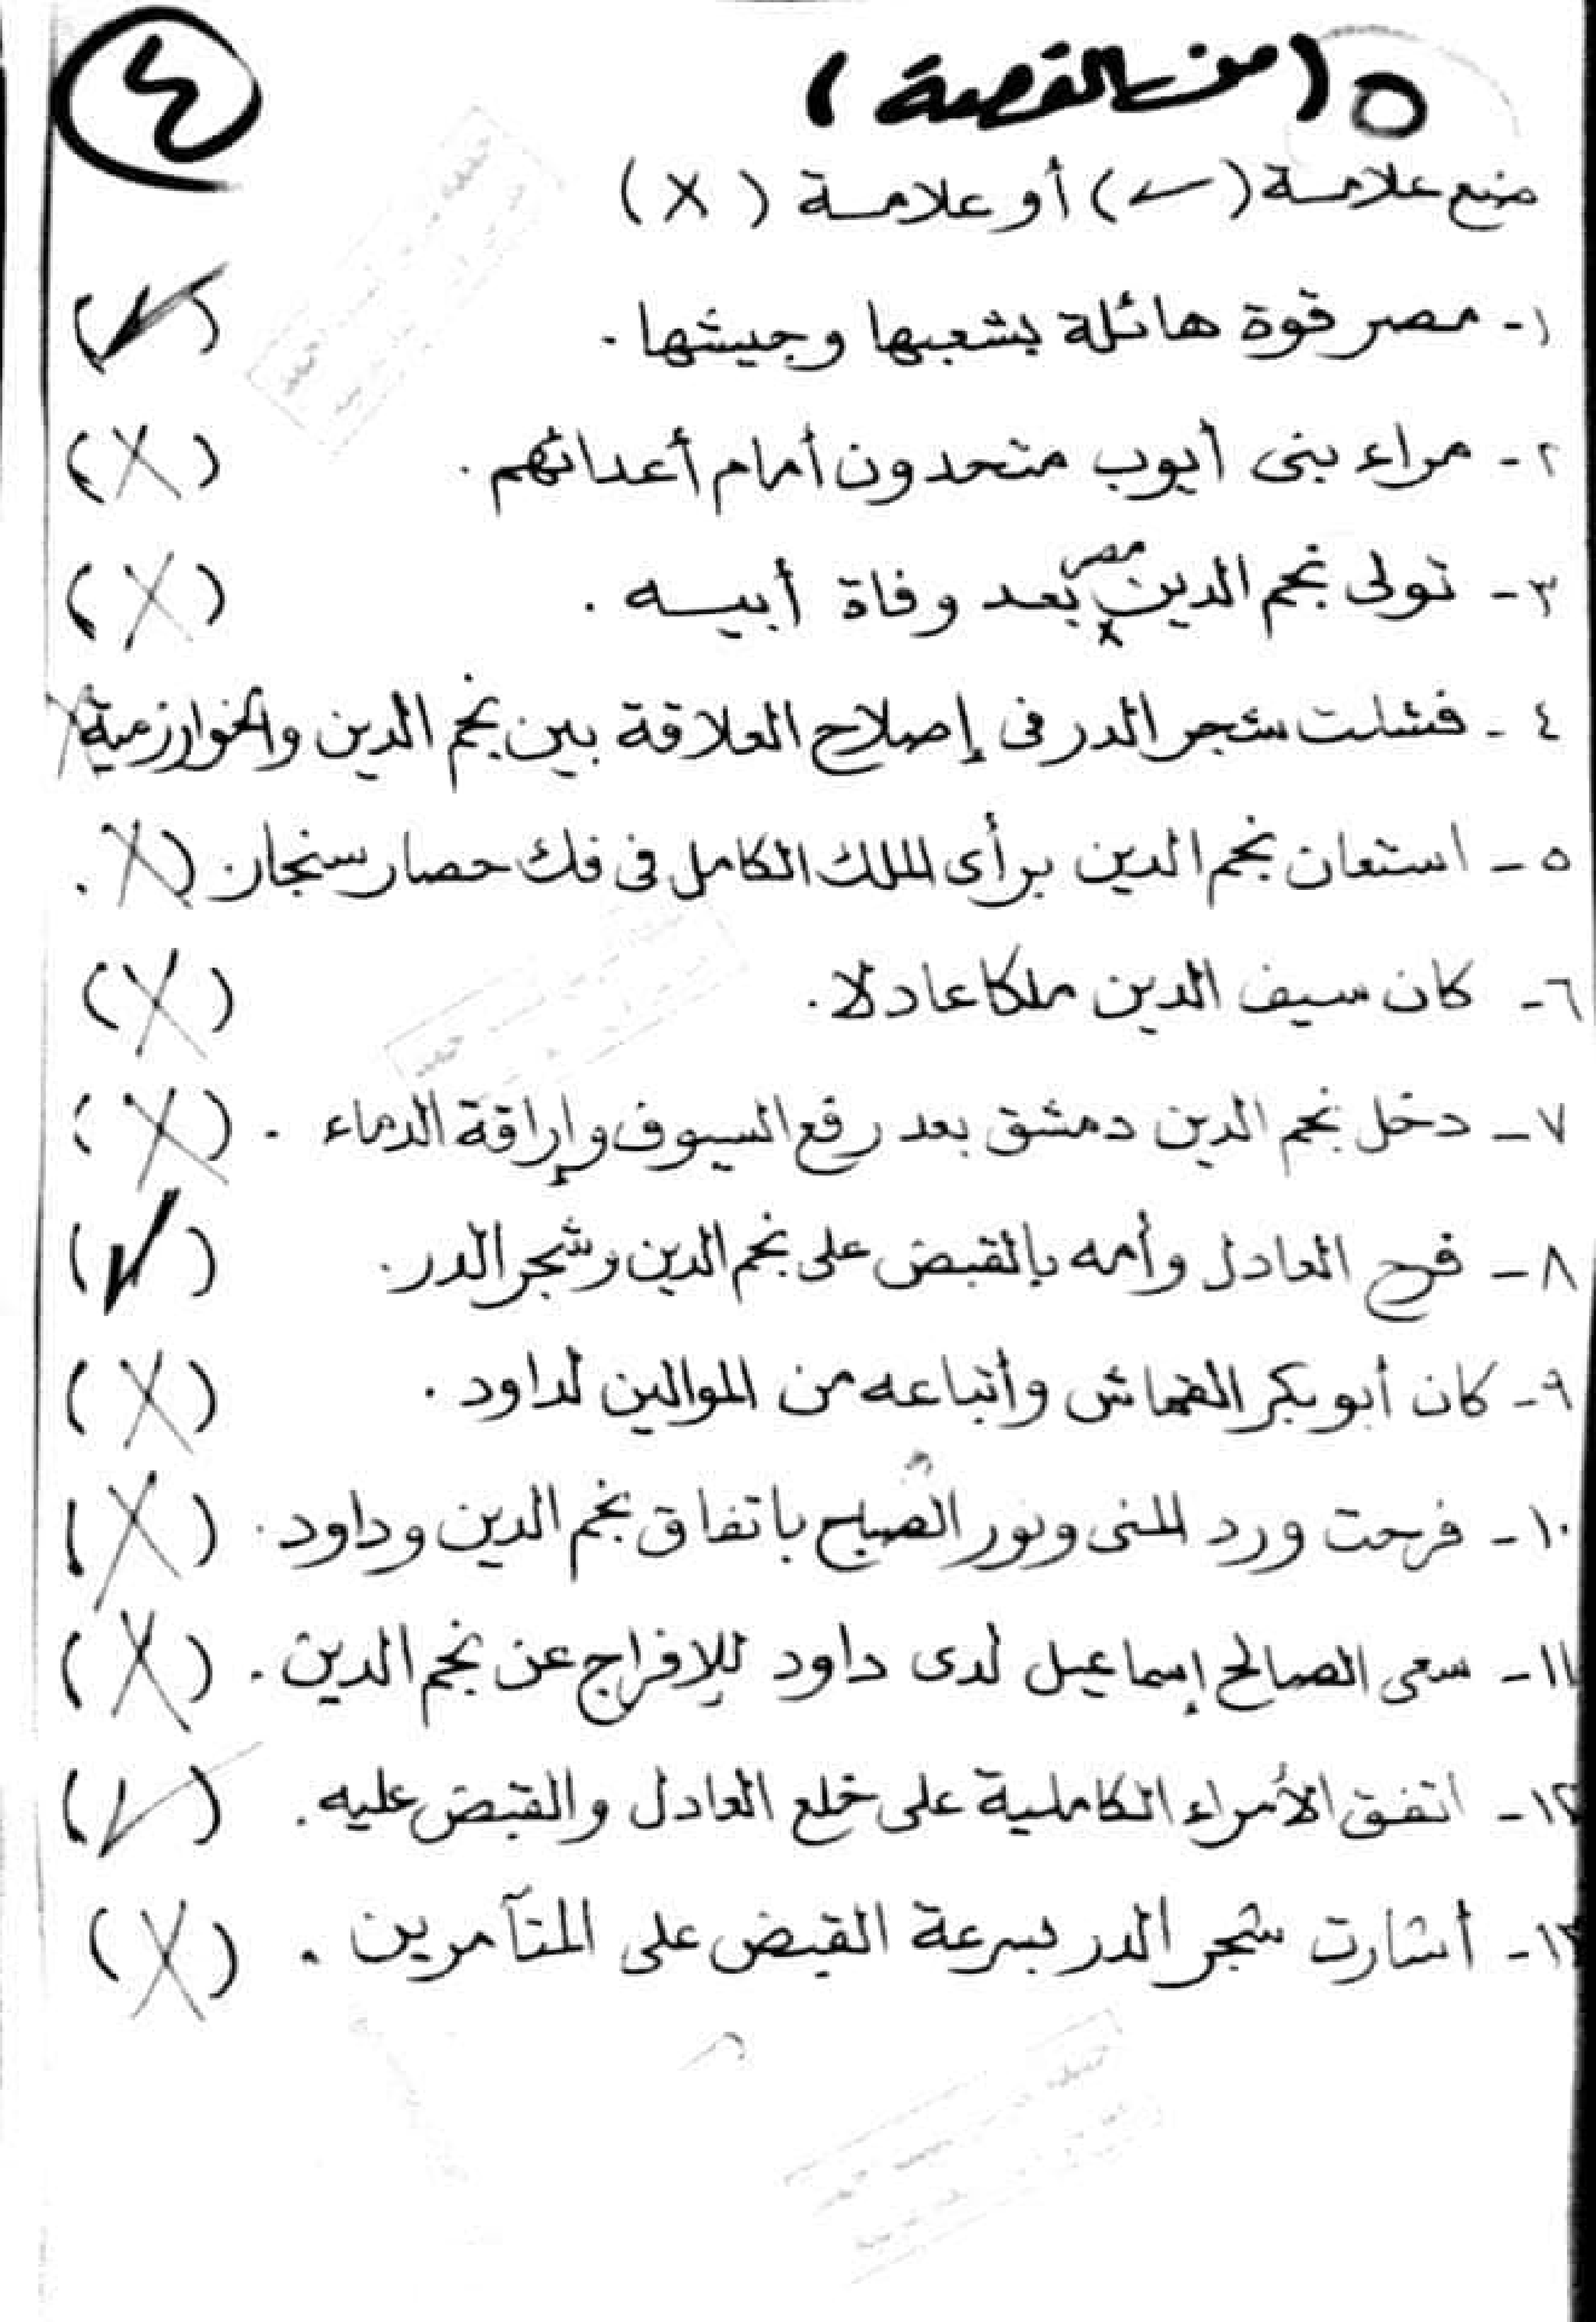 ٤
٥ (من القصة)
ضع علامة (✓) أو علامة (X)
١- مصر قوة هائلة بشعبها وجيشها. (✓)
٢- مراء بنى أيوب متحدون أمام أعدائهم. (X)
٣- تولى نجم الدين مصر بعد وفاة أبيه. (X)
٤- فشلت شجر الدر فى إصلاح العلاقة بين نجم الدين والخوارزمية X
٥- استعان نجم الدين برأى الملك الكامل فى فك حصار سنجار. (X).
٦- كان سيف الدين ملكا عادلا. (X)
٧- دخل نجم الدين دمشق بعد رفع السيوف وإراقة الدماء. (X)
٨- فرح العادل وأمه بالقبض على نجم الدين وشجر الدر. (✓)
٩- كان أبو بكر القماش وأتباعه من الموالين لداود. (X)
١٠- فرحت ورد المنى ونور الصباح باتفاق نجم الدين وداود. (X)
١١- سعى الصالح إسماعيل لدى داود للإفراج عن نجم الدين. (X)
١٢- اتفق الأمراء الكاملية على خلع العادل والقبض عليه. (✓)
١٣- أشارت شجر الدر بسرعة القبض على المتآمرين. (X)